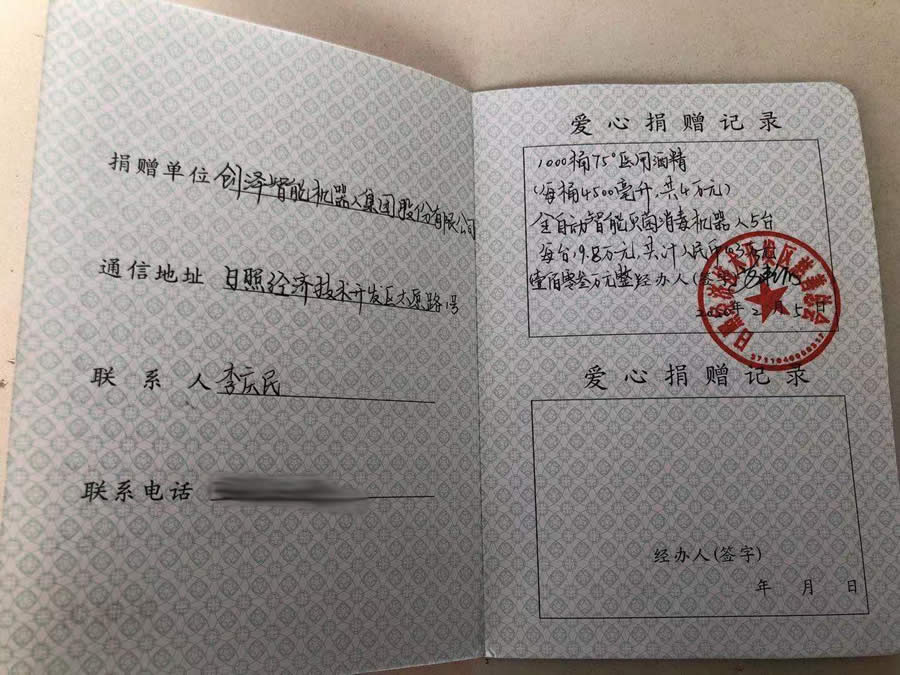 捐赠单位 创泽智能机器人集团股份有限公司
通信地址 日照经济技术开发区太原路1号
联系人 李庆民
联系电话
爱心捐赠记录
1000桶75°医用酒精
(每桶4500毫升,共4万元)
全自动智能灭菌消毒机器人5台
每台19.8万元,共计人民币103万元
壹佰零叁万元整 经办人(签字)
2020年2月5日
爱心捐赠记录
经办人(签字)
年 月 日